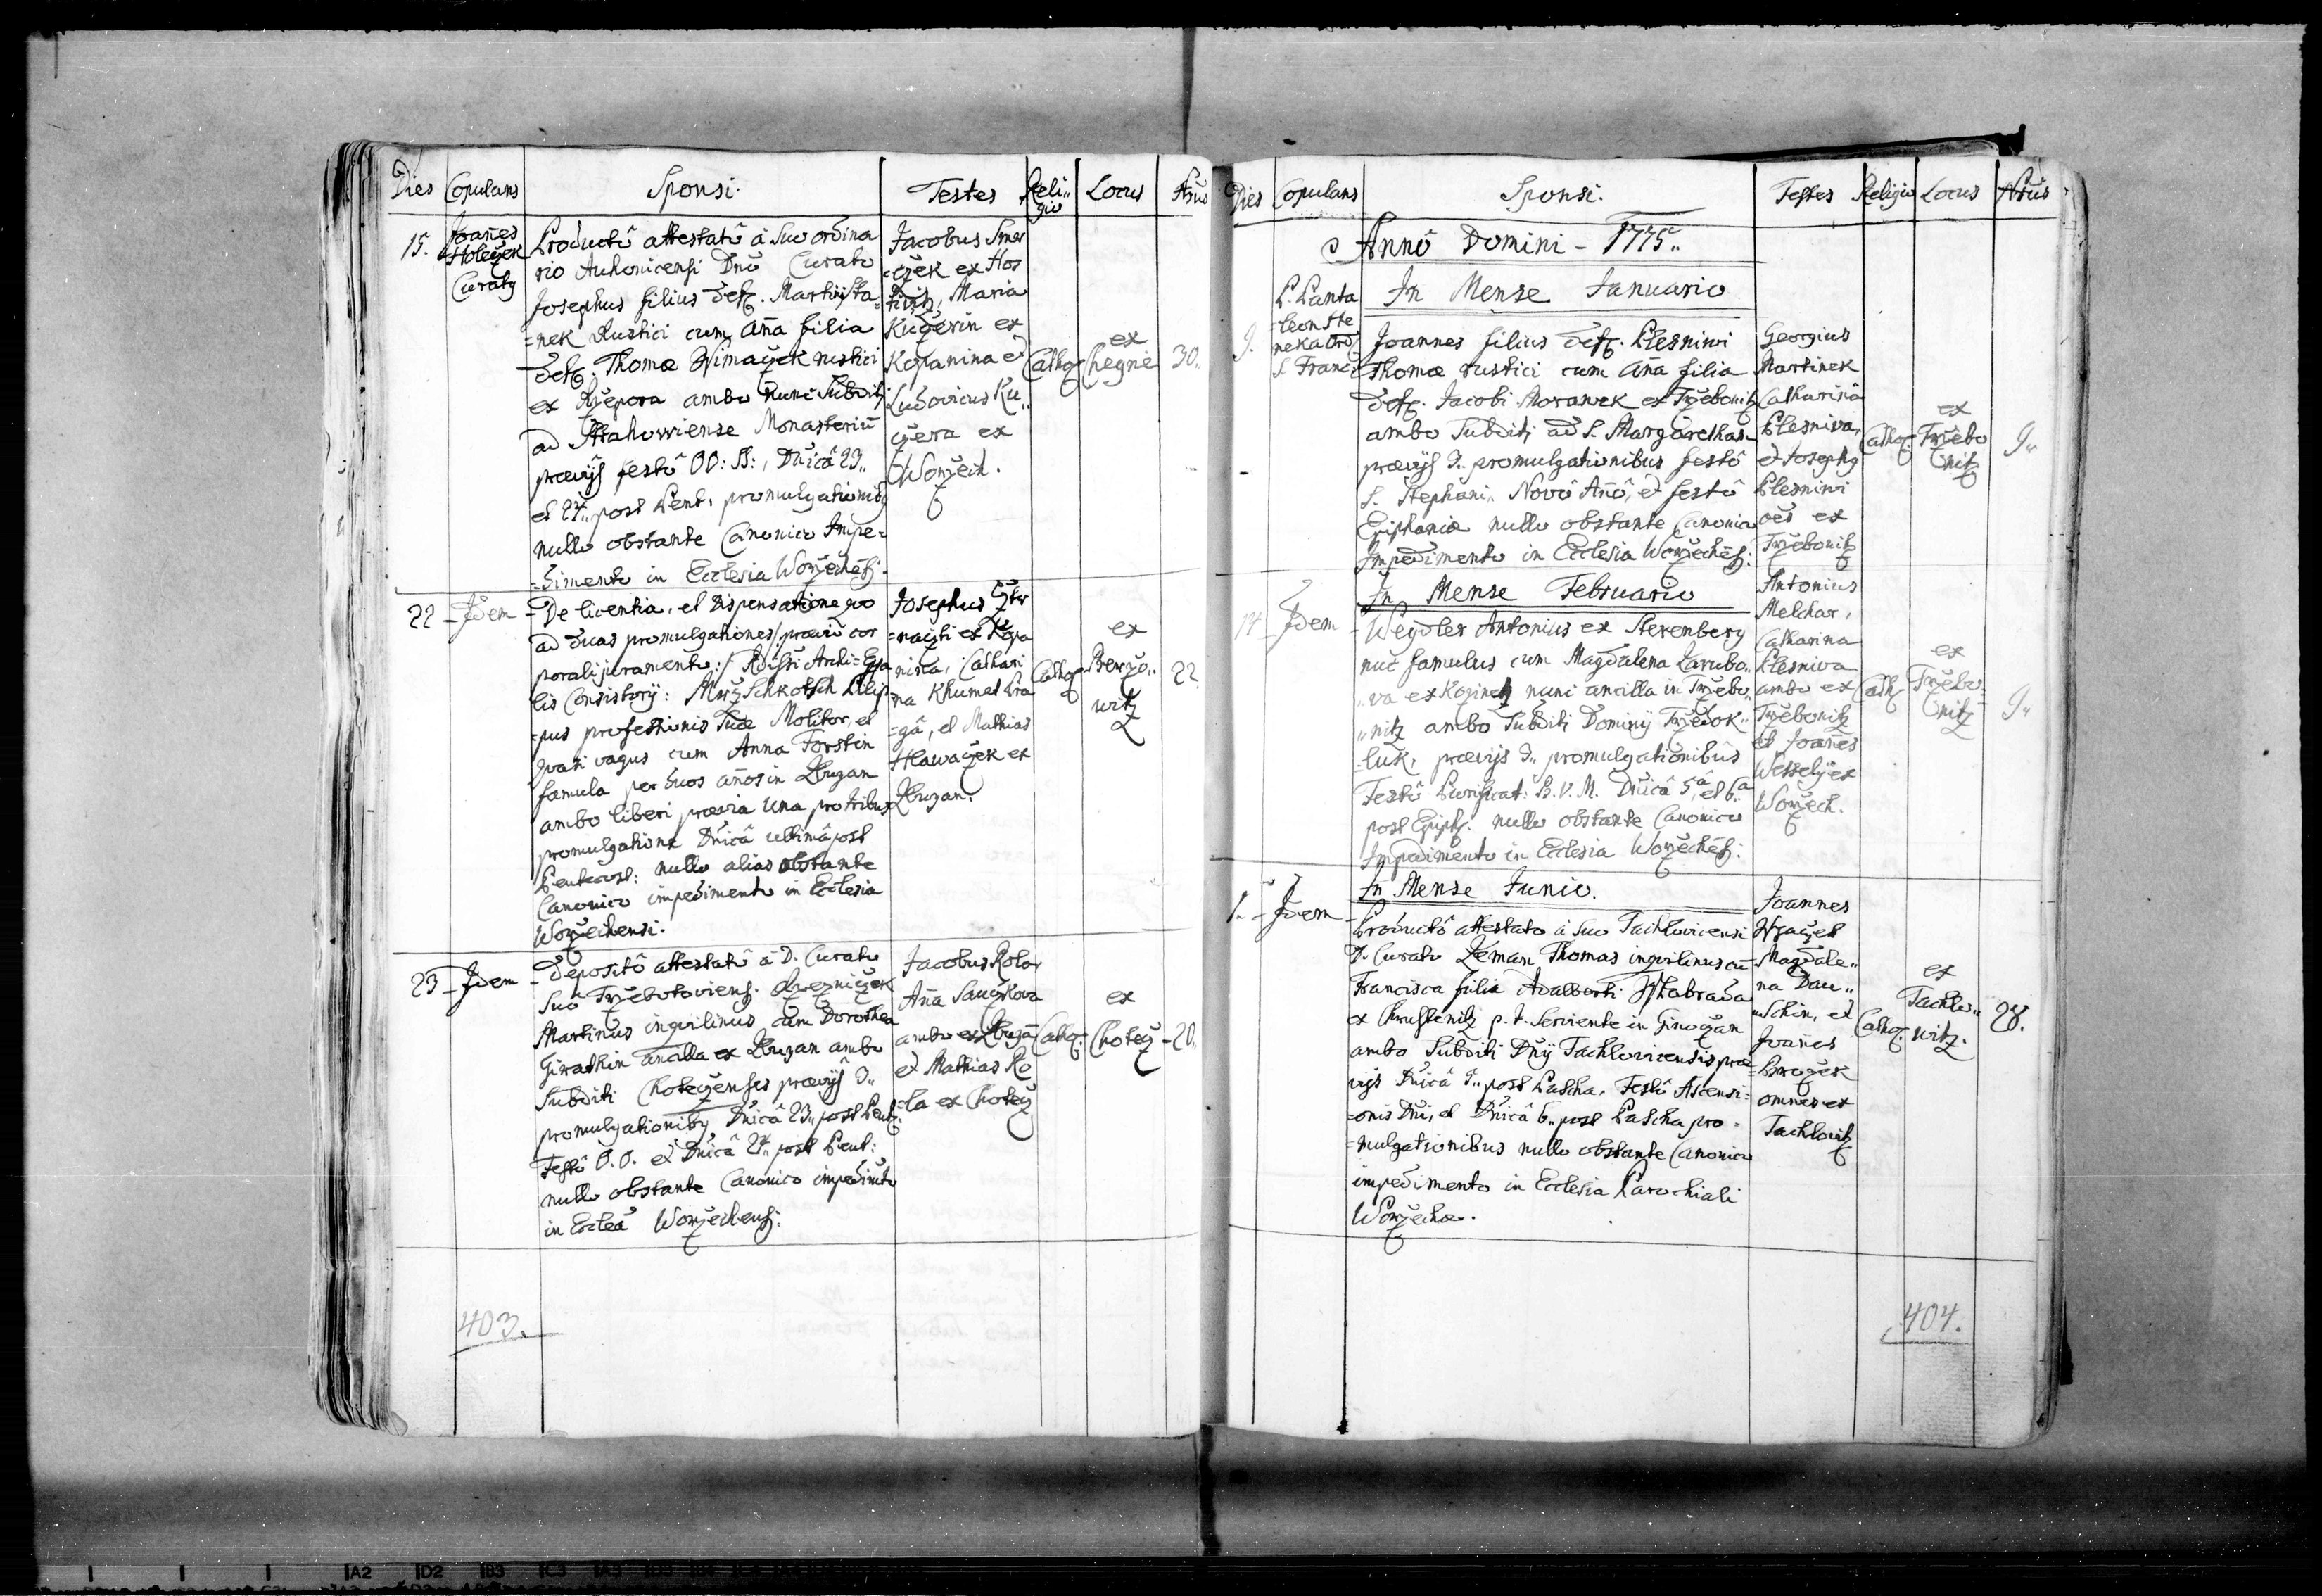 Dies Copulans Sponsi. Testes Reli„gio Locus Nrus
15. Joañes Holeček Curatq
Productô attestatô â Suo ordina
rio Auhonicensi Dnô Curato
Josephus filius def. Martin Sta=
=nek Rustici cum Aña filia
def. Thomæ Zimaczek rustici
ex Rzepora ambo nunc Subditi
ad Strahowiense Monasteriũ
prævijs festô OO: SS:, Dnicâ 23„
et 24„ post Pent. promulgationibq
nullo obstante Canonico Impe=
=dimento in Ecclesia Worzechēs:
Jacobus Smr
=czek ex Hos
tiwitz, Maria
Kuczerin ex
Kopanina et
Ludovicus Ku„
czera ex
Worzech.
Cathoq
ex
Chegnie
30„
22 – Idem –
De licentia, et Dispensatione quo
ad duas promulgationes/: prævio cor
porali juramento :/ Rdissi Archi=Eppa
lis Consistorij: Schkolsch Philip
=pus professionis suæ Molitor, et
quasi vagus cum Anna Forstin
famula per duos años in Zbuzan
ambo liberi prævia una pro tribus
promulgatione Dnicâ ultimâ post
Pentecost: nullo alias obstante
Canonico impedimento in Ecclesia
Worzechensi.
Josephus
ex Kopa
nina, Cathari
na Khumat Pra
=gâ, et Mathias
Hlawaczek ex
Zbuzan.
Cathoq
ex
witz
22
23 – Idem –
Depositô attestatô â D. Curato
Suo Trzebotoviens. Rzezniczek
Martinus inquilinus cum Dorothea
Girathin ancilla ex Zbuzan ambo
Subditi Choteczenses prævijs 3„
promulgationibq Dnicâ 23„ post Pent:
Festô O.O. et Dnicâ 24„ post Pent:
nullo obstante Canonico impedimto
in Eccleâ Worzechensi:
Jacobus Rola
Aña Sauczkova
ambo ex Zbuzā
et Mathias Ro
=la ex Chotecz
Cathoq.
ex
Chotecz
– 20„
403.
Dies Copulans Sponsi. Testes Religio Locus Nrus
Annô Domini – 1775„
In Mense Januario
9.
P. Panta
=leon Ste
neka Ord
S. Franc:
Joannes filius def. Plesniwi
Thomæ rustici cum Aña filia
def. Jacobi Morawek ex Trzebonitz
ambo Subditi ad S. Margaretham
prævijs 3„ promulgationibus festô
S. Stephani, Novô Añô, et festô
Epiphaniæ nullo obstante Canonico
Impedimento in Ecclesia Worzechēs:
Georgius
Martinek
Catharina
Plesniva,
et Josephq
Plesniwi
oēs ex
Trzebonitz
Cathoq.
ex
Trzebo
nitz
9„
In Mense Februario
14 – Idem –
Weydler Antonius ex Sterenberg
nũc famulus cum Magdalena Zarubo„
„va ex Kozinetz nunc ancilla in Trzebo„
„nitz ambo Subditi Dominij Trzedok„
=luk, prævijs 3„ promulgationibus
Festô Purificat: B.V.M. Dnicâ 5â, et 6â
post Epiph: nullo obstante Canonico
Impedimento in Ecclesia Worzechēs:
Antonius
Melchar,
Catharina
Plesniva
ambo ex
Trzebonitz
et Joañes
Wessely ex
Worzech.
Cath
ex
Trzebo=
nitz
9„
In Mense Junio.
1. – Idem –
Productô attestato â Suo Tachlovicensi
D. Curato Zeman Thomas inquilinus cũ
Francisca filia Adalberti Hlabrada
ex Chrustenitz p. t. Serviente in Ginoczan
ambo Subditi Dnij Tachlovicensis præ
vijs Dnicâ 5„ post Pascha, Festô Ascensi=
=onis Dni, et Dnicâ 6„ post Pascha pro=
=mulgationibus nullo obstante Canonico
impedimento in Ecclesia Parochiali
Worzechæ.
Joannes
Magdale„
na Dau„
„schin, et
Joañes
Broczek
omnes ex
Tachlovitz
Cathoq.
ex
Tachlo„
witz.
28.
404.